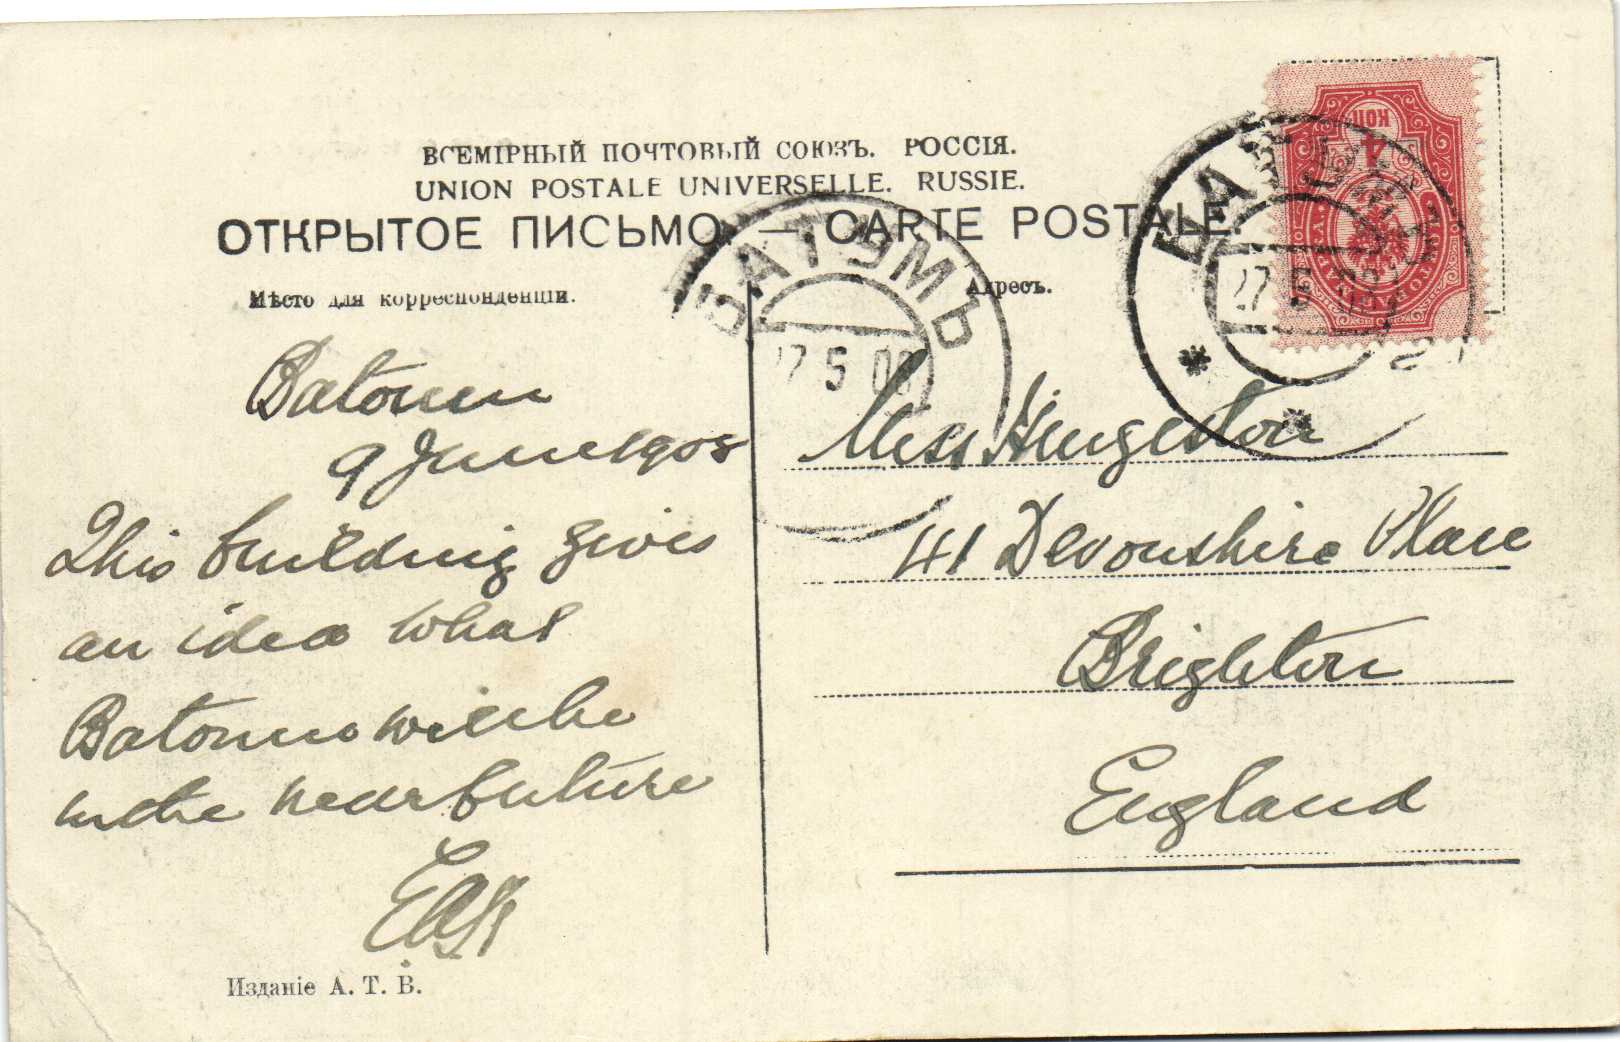 ВСЕМІРНЫЙ ПОЧТОВЫЙ СОЮЗЪ. РОССІЯ.
UNION POSTALE UNIVERSELLE. RUSSIE.
ОТКРЫТОЕ ПИСЬМО. — CARTE POSTALE.
Мѣсто для корреспонденціи.
Адресъ.
4
КОП
БАТУМЪ
27 5 08
БАТУМЪ
27 5 08
Batoum
9 June 1908
This building gives
an idea what
Batoum will be
in the near future
Miss Hingeston
41 Devonshire Place
Brighton
England
Изданіе А. Т. В.